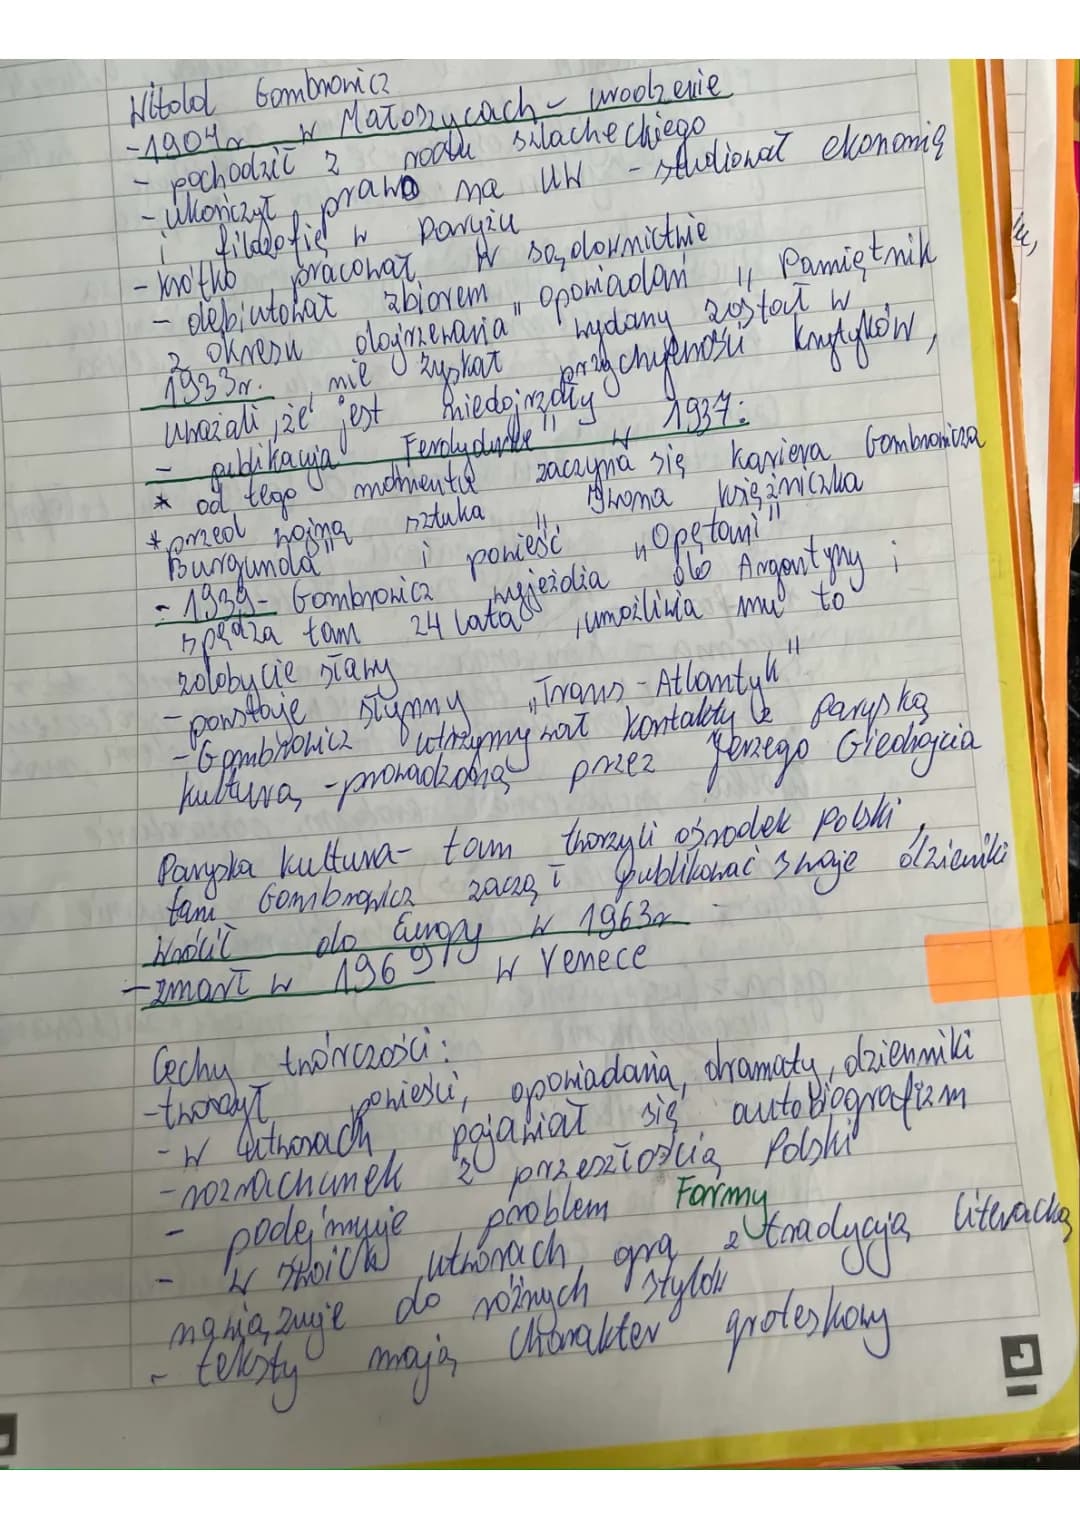 Witold Gombrowicz
- 1904r w Małoszycach - urodzenie
- pochodził z rodu szlacheckiego
- ukończył prawo na UW - studiował ekonomię
i filozofię w Paryżu
- krótko pracował w sądownictwie
- debiutował zbiorem opowiadań "Pamiętnik
z okresu dojrzewania" wydany został w
1933r. nie zyskał przychylności krytyków,
uważali, że jest niedojrzały
- publikacja "Ferdydurke" w 1937:
* od tego momentu zaczyna się kariera Gombrowicza
* przed wojną sztuka "Iwona księżniczka
Burgunda" i powieść "Opętani"
- 1939 - Gombrowicz wyjeżdża do Argentyny i
spędza tam 24 lata, umożliwia mu to
zdobycie sławy
- powstaje słynny "Trans-Atlantyk"
- Gombrowicz utrzymywał kontakty z paryską
kulturą - prowadzoną przez Jerzego Giedrojcia
Paryska kultura - tam tworzyli ośrodek polski,
tam Gombrowicz zaczął publikować swoje dzienniki
Wrócił do Europy w 1963r
- zmarł w 1969 w Venece
Cechy twórczości:
- tworzył powieści, opowiadania, dramaty, dzienniki
- w utworach pojawiał się autobiografizm
- rozrachunek z przeszłością Polski
- podejmuje problem Formy
- w swoich utworach gra z tradycją literacką
nawiązuje do różnych stylów
- teksty mają charakter groteskowy